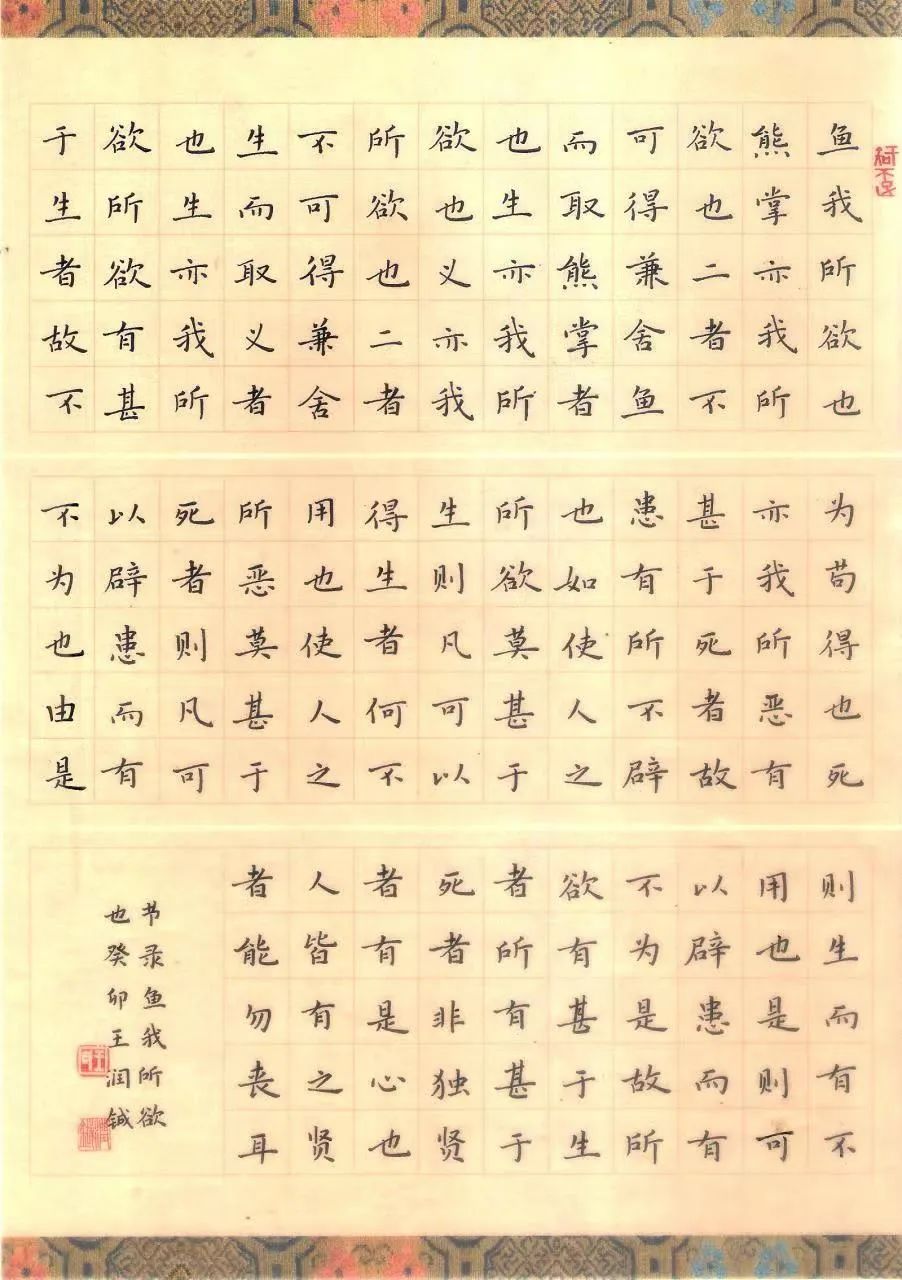 鱼我所欲也
熊掌亦我所
欲也二者不
可得兼舍鱼
而取熊掌者
也生亦我所
欲也义亦我
所欲也二者
不可得兼舍
生而取义者
也生亦我所
欲所欲有甚
于生者故不
为苟得也死
亦我所恶有
甚于死者故
患有所不辟
也如使人之
所欲莫甚于
生则凡可以
得生者何不
用也使人之
所恶莫甚于
死者则凡可
以辟患而有
不为也由是
则生而有不
用也是则可
以辟患而有
不为是故所
欲有甚于生
者所有甚于
死者非独贤
者有是心也
人皆有之贤
者能勿丧耳
书录鱼我所欲
也癸卯王润铖